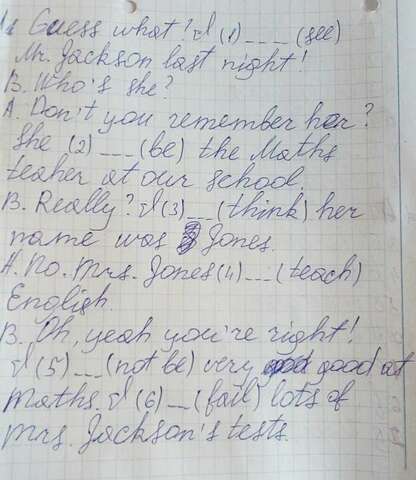 A. Guess what! I (1) ___ (see)
Mr. Jackson last night!
B. Who's she?
A. Don't you remember her?
She (2) ___ (be) the Maths
teaher at our school.
B. Really? I (3) __ (think) her
name was Jones.
A. No. Mrs. Jones (4) __ (teach)
English.
B. Oh, yeah you're right!
I (5) __ (not be) very good at
Maths. I (6) __ (fail) lots of
Mrs. Jackson's tests.